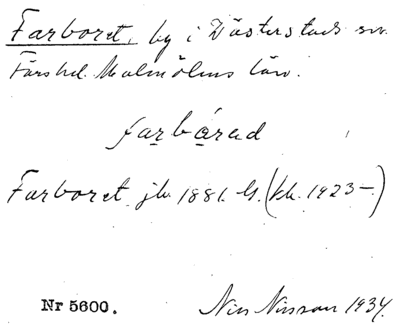 Farboret, by i Västerstads sn.
Färs hd. Malmöhus län.
farbårad
Farboret jb. 1881. G. (kb. 1923–)
Nr 5600.
Nils Nilsson 1934.